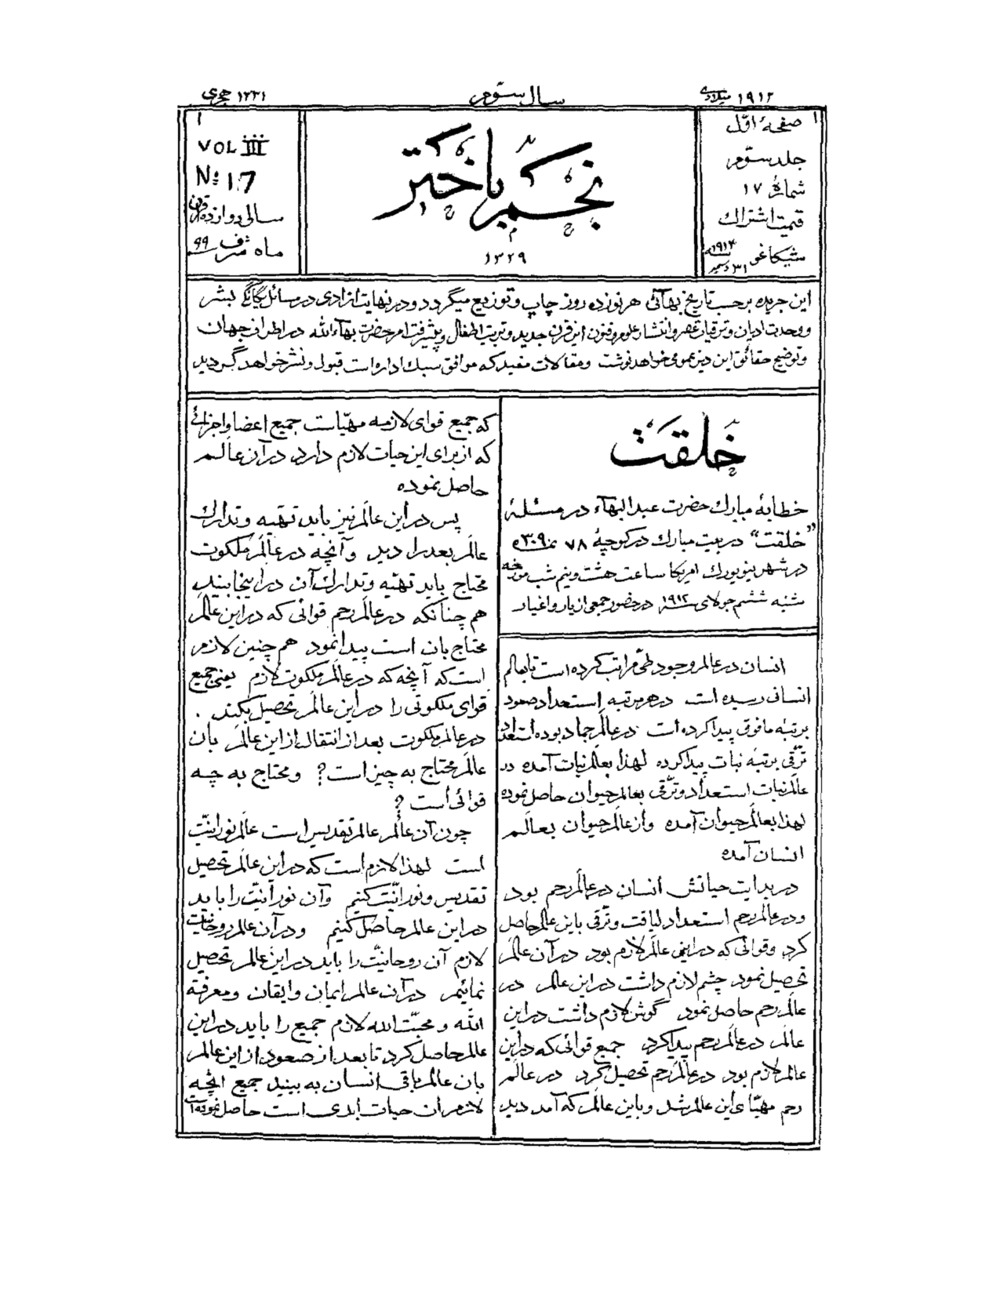 ۱۹۱۲ میلادی
سال سوّم
۱۳۳۱ هجری
صفحهٔ اوّل
جلد سوّم
شمارهٔ ۱۷
قیمت اشتراک
شیکاغو
نجم باختر
۱۳۲۹
VOL III
Nº 17
سال دوازده
ماه شرف ۹۹
این جریده برحسب تاریخ بهائی هر نوزده روز چاپ و توزیع میگردد و در نهایت آزادی در مسائل یگانگی بشر
و وحدت ادیان و ترقیات عصر و انتشار علوم و فنون این قرن جدید و تربیت اطفال و پیشرفت امر حضرت بهاءالله در اطراف جهان
و توضیح حقائق این دین عمومی خواهد نوشت و مقالات مفید که موافق سبک اداره است قبول و نشر خواهد گردید
خلقت
خطابهٔ مبارک حضرت عبدالبهآء در مسئلهٔ
"خلقت" در بیت مبارک در کوچهٔ ۷۸ نمره ۳۰۹
در شهر نیویورک امریکا ساعت هشت و نیم شب مورّخه
شنبه ششم جولای ۱۹۱۲ در حضور جمعی از یار و اغیار
انسان در عالم وجود طیّ مراتب کرده است تا بعالم
انسانی رسیده است در هر مرتبه استعداد صعود
برتبهٔ مافوق پیدا کرده است در عالم جماد بوده است استعداد
ترقّی برتبهٔ نبات پیدا کرده لهذا بعالم نبات آمده در
عالم نبات استعداد و ترقّی بعالم حیوان حاصل نموده
لهذا بعالم حیوان آمده و از عالم حیوان بعالم
انسان آمده
در بدایت حیاتش انسان در عالم رحم بود
و در عالم رحم استعداد لیاقت و ترقّی باین عالم حاصل
کرد و قوائی که در این عالم لازم بود در آن عالم
تحصیل نمود چشم لازم داشت در این عالم در
عالم رحم حاصل نمود گوش لازم داشت در این
عالم در عالم رحم پیدا کرد جمیع قوائی که در این
عالم لازم بود در عالم رحم تحصیل کرد در عالم
رحم مهیّای این عالم شد و باین عالم که آمد دید
که جمیع قوای لازمه مهیّاست جمیع اعضا و اجزائی
که از برای این حیات لازم دارد در آن عالم
حاصل نموده
پس در این عالم نیز باید تهیّه و تدارک
عالم بعد را دید و آنچه در عالم ملکوت
محتاج باید تهیّه و تدارک آن در اینجا بیند
هم چنانکه در عالم رحم قوائی که در این عالم
محتاج بان است پیدا نمود هم چنین لازم
است که آنچه که در عالم ملکوت لازم یعنی جمیع
قوای ملکوتی را در این عالم تحصیل بکند .
در عالم ملکوت بعد از انتقال از این عالم بان
عالم محتاج به چیز است؟ و محتاج به چه
قوائی است ؟
چون آن عالم عالم تقدیس است عالم نورانیّت
است لهذا لازم است که در این عالم تحصیل
تقدیس و نورانیّت کنیم و آن نورانیّت را باید
در این عالم حاصل کنیم و در آن عالم روحانیّت
لازم آن روحانیّت را باید در این عالم تحصیل
نمائیم در آن عالم ایمان و ایقان و معرفة
الله و محبّت الله لازم جمیع را باید در این
عالم حاصل کرد تا بعد از صعود از این عالم
بان عالم باقی انسان به بیند جمیع آنچه
لازم آن حیات ابدی است حاصل نموده است